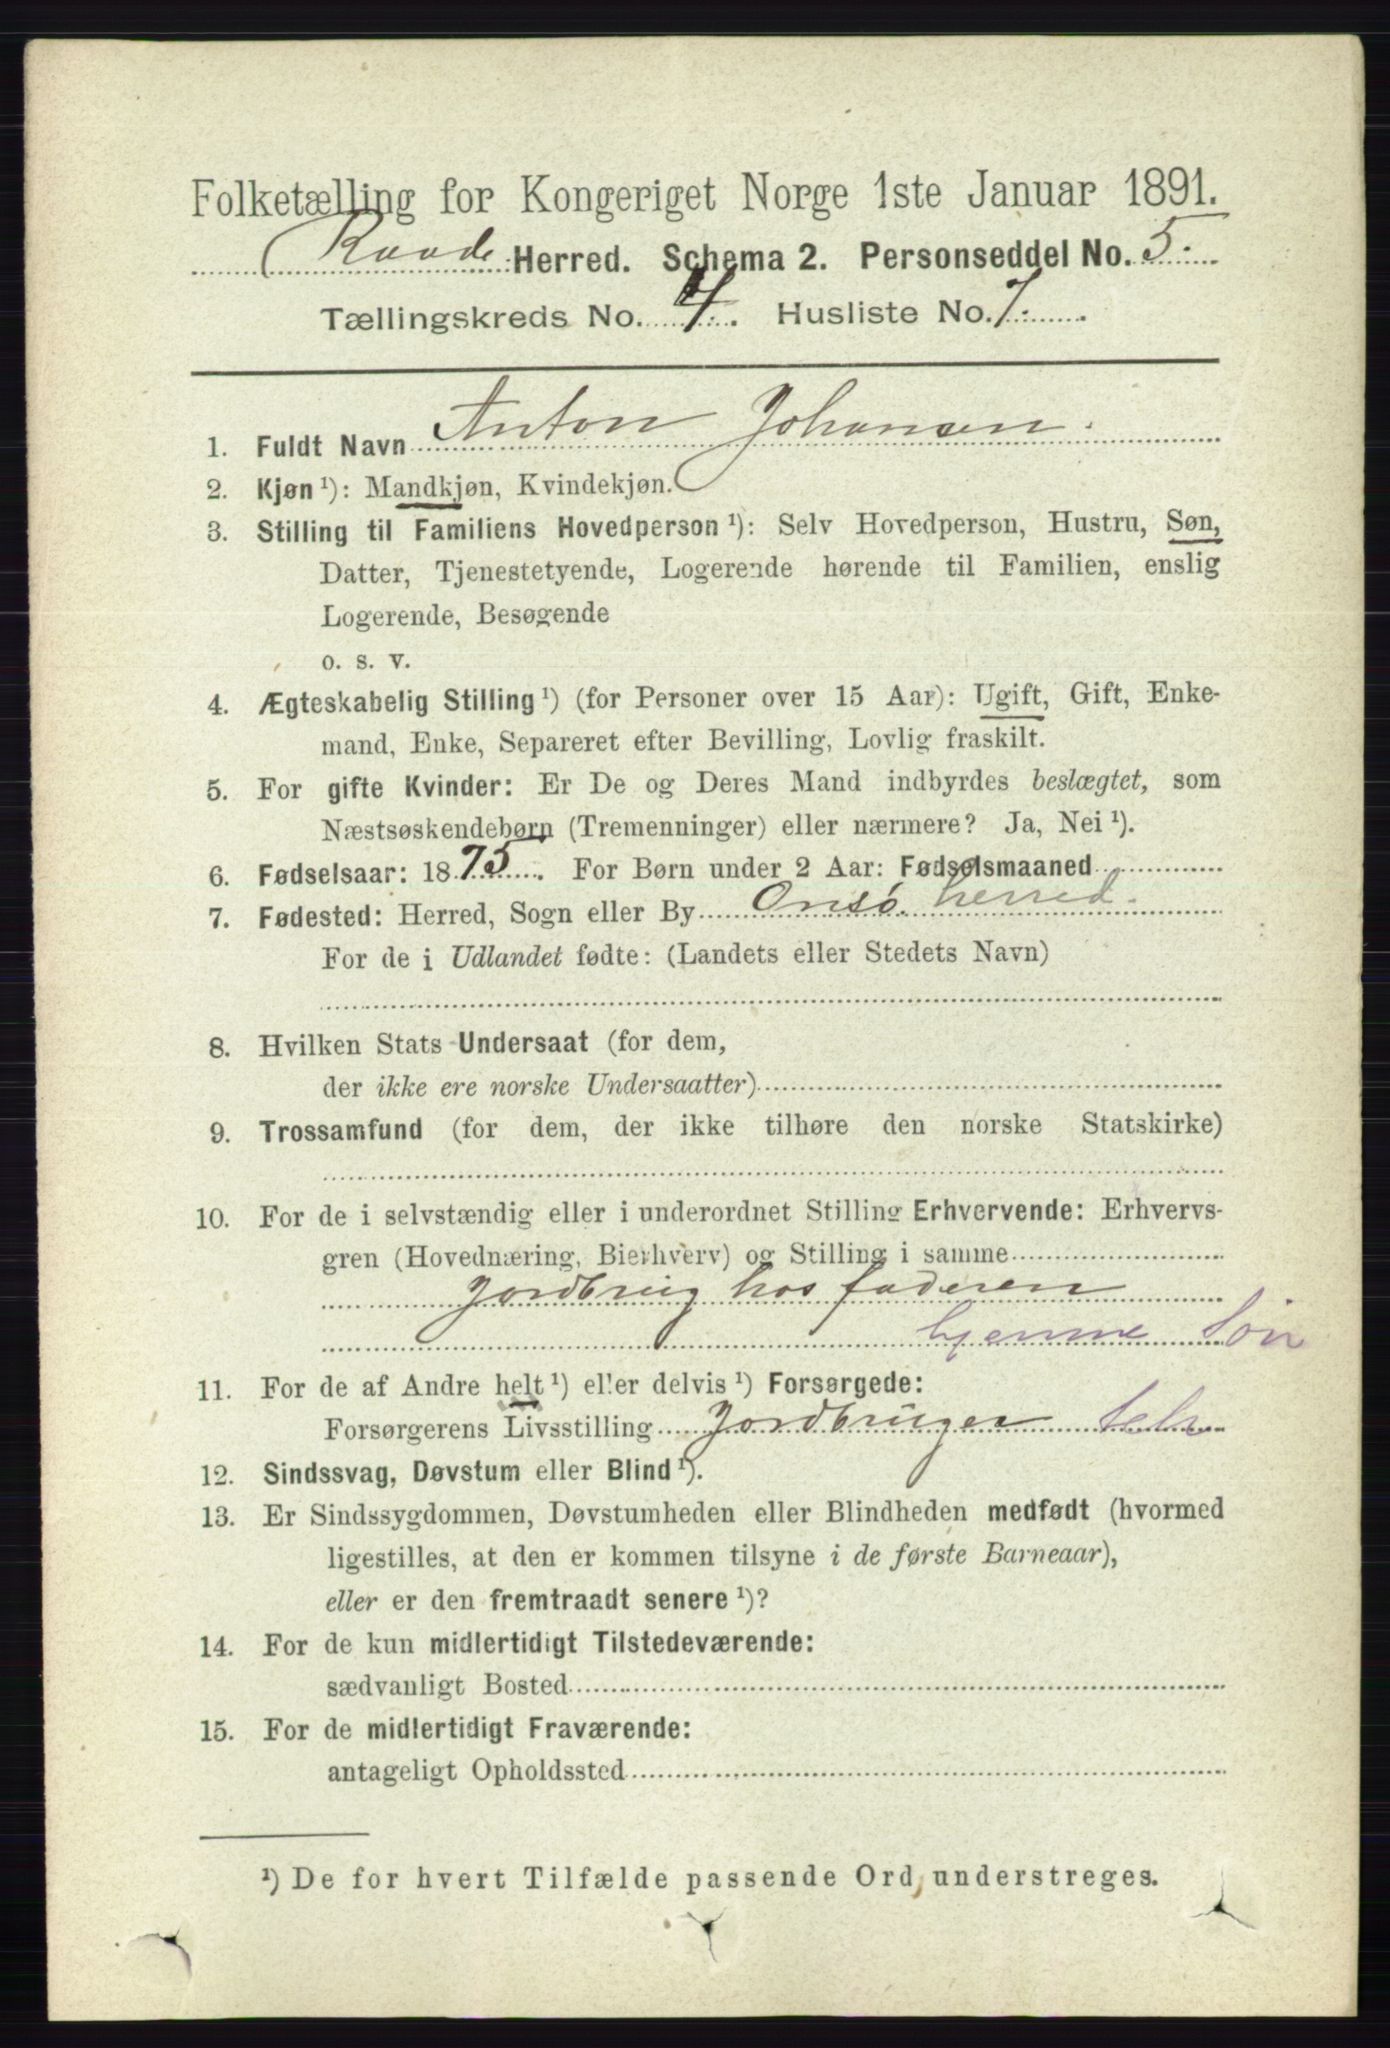 Folketælling for Kongeriget Norge 1ste Januar 1891.
Raade Herred. Schema 2. Personseddel No. 5.
Tællingskreds No. 4. Husliste No. 7.
1. Fuldt Navn Anton Johansen.
2. Kjøn ¹): Mandkjøn, Kvindekjøn.
3. Stilling til Familiens Hovedperson ¹): Selv Hovedperson, Hustru, Søn,
Datter, Tjenestetyende, Logerende hørende til Familien, enslig
Logerende, Besøgende
o. s. v.
4. Ægteskabelig Stilling ¹) (for Personer over 15 Aar): Ugift, Gift, Enke-
mand, Enke, Separeret efter Bevilling, Lovlig fraskilt.
5. For gifte Kvinder: Er De og Deres Mand indbyrdes beslægtet, som
Næstsøskendebørn (Tremenninger) eller nærmere? Ja, Nei ¹).
6. Fødselsaar: 1875. For Børn under 2 Aar: Fødselsmaaned
7. Fødested: Herred, Sogn eller By Onsø herred.
For de i Udlandet fødte: (Landets eller Stedets Navn)
8. Hvilken Stats Undersaat (for dem,
der ikke ere norske Undersaatter)
9. Trossamfund (for dem, der ikke tilhøre den norske Statskirke)
10. For de i selvstændig eller i underordnet Stilling Erhvervende: Erhvervs-
gren (Hovednæring, Bierhverv) og Stilling i samme
Jordbrug hos faderen
hjemme Søn
11. For de af Andre helt ¹) eller delvis ¹) Forsørgede:
Forsørgerens Livsstilling Jordbruger Selv
12. Sindssvag, Døvstum eller Blind ¹).
13. Er Sindssygdommen, Døvstumheden eller Blindheden medfødt (hvormed
ligestilles, at den er kommen tilsyne i de første Barneaar),
eller er den fremtraadt senere ¹)?
14. For de kun midlertidigt Tilstedeværende:
sædvanligt Bosted
15. For de midlertidigt Fraværende:
antageligt Opholdssted
¹) De for hvert Tilfælde passende Ord understreges.